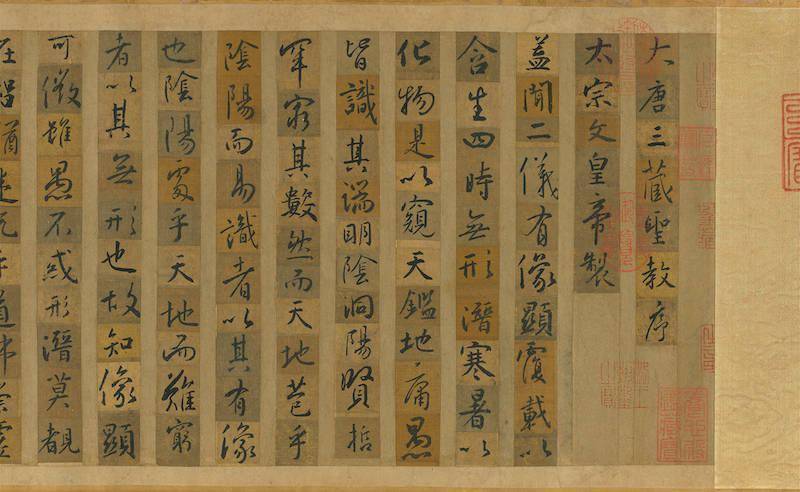 大唐三藏聖教序
太宗文皇帝製
蓋聞二儀有像顯覆載以
含生四時無形潛寒暑以
化物是以窺天鑑地庸愚
皆識其端明陰洞陽賢哲
罕窮其數然而天地苞乎
陰陽而易識者以其有像
也陰陽處乎天地而難窮
者以其無形也故知像顯
可徵雖愚不惑形潛莫覩
在智猶迷況乎道沖崇虛